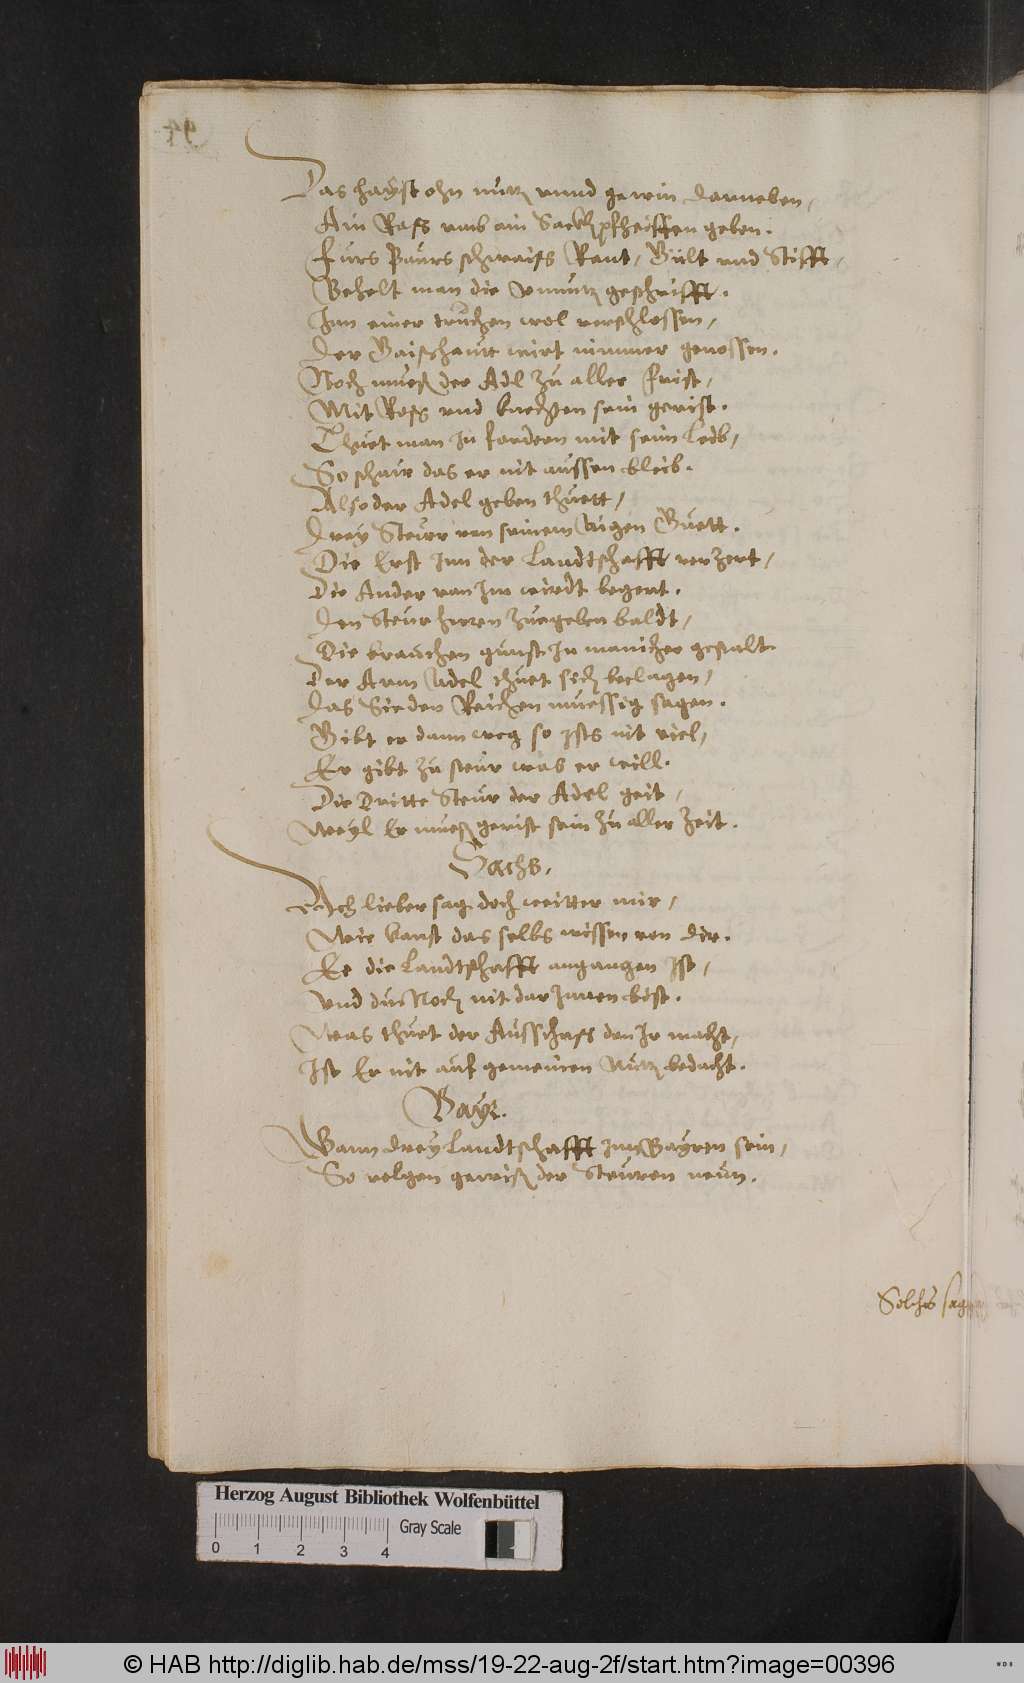 Das hayst ohn nutz vnnd gewin darneben,
Ain Roß vmb ain Sackpfheiffen geben.
Furs Paurs schwaiß Rent, Gült vnd Stifft,
Behelt man die vnnutz geschrifft.
Inn einer truchen wol verschlossen,
Der Gaischaur wirt nimmer genossen.
Noch mueß der Adl zu aller frist,
Mit Roß vnd knechten sein gerist.
Thuet man In fordern mit seim Leib,
So schaur das er nit aussen bleib.
Also der Adel geben thuett,
Drey Steur von seinem Aigen Guett.
Die Erst Inn der Landtschafft verzert,
Die Ander von Im wirdt begert.
Den Steurherren zuegeben baldt,
Die brauchen gunst In manicher gestalt.
Der Arm Adel thuet sich beclagen,
Das Sie der Reichen muessig sagen.
Gibt er dann weg so ists nit viel,
Er gibt zu steur was er will.
Die Dritte Steur der Adel geit,
Weyl Er mueß gerist sein zu aller Zeit.
Sachs.
Ach lieber sag doch weitter mir,
Wie kanst das selbs wissen von dir.
Ee die Landtschafft angangen Ist,
Vnd du Noch nit dar Innen bist.
Was thuet der Ausschuß den Ir macht,
Ist Er nit auf gemeinen Nutz bedacht.
Bayr.
Wann drey Landtschafft Inn Bayren sein,
So volgen gewiß der Steuren neun.
Solches sag
Herzog August Bibliothek Wolfenbüttel
Gray Scale
0 1 2 3 4
© HAB http://diglib.hab.de/mss/19-22-aug-2f/start.htm?image=00396